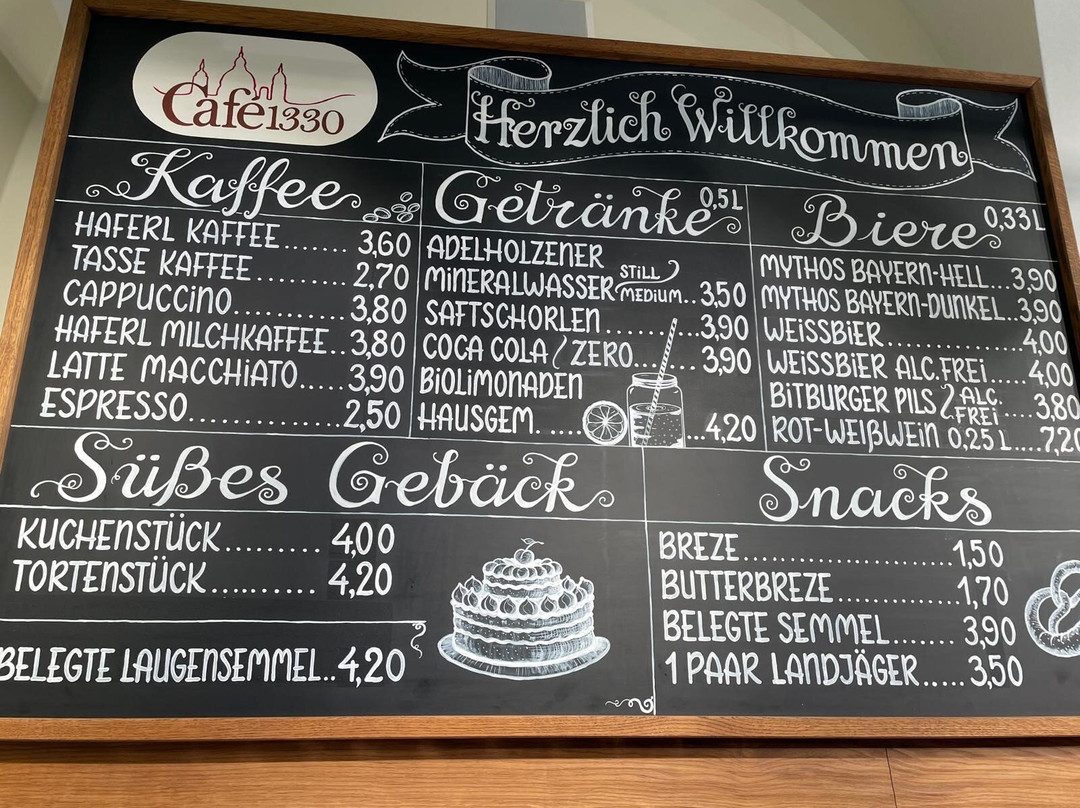 Café 1330
Herzlich Willkommen
Kaffee
HAFERL KAFFEE....... 3,60
TASSE KAFFEE.......... 2,70
CAPPUCCINO............ 3,80
HAFERL MILCHKAFFEE.. 3,80
LATTE MACCHIATO..... 3,90
ESPRESSO.............. 2,50
Getränke 0,5L
ADELHOLZENER
MINERALWASSER STILL MEDIUM.. 3,50
SAFTSCHORLEN.......... 3,90
COCA COLA / ZERO...... 3,90
BIOLIMONADEN
HAUSGEM. ..... ...4,20
Biere 0,33L
MYTHOS BAYERN-HELL...3,90
MYTHOS BAYERN-DUNKEL..3,90
WEISSBIER...............4,00
WEISSBIER ALC.FREI.....4,00
BITBURGER PILS / ALC. FREI.....3,80
ROT-WEIßWEIN 0,25 L....7,20
Süßes Gebäck
KUCHENSTÜCK......... 4,00
TORTENSTÜCK.......... 4,20
BELEGTE LAUGENSEMMEL.. 4,20
Snacks
BREZE.....................1,50
BUTTERBREZE............1,70
BELEGTE SEMMEL....... 3,90
1 PAAR LANDJÄGER..... 3,50